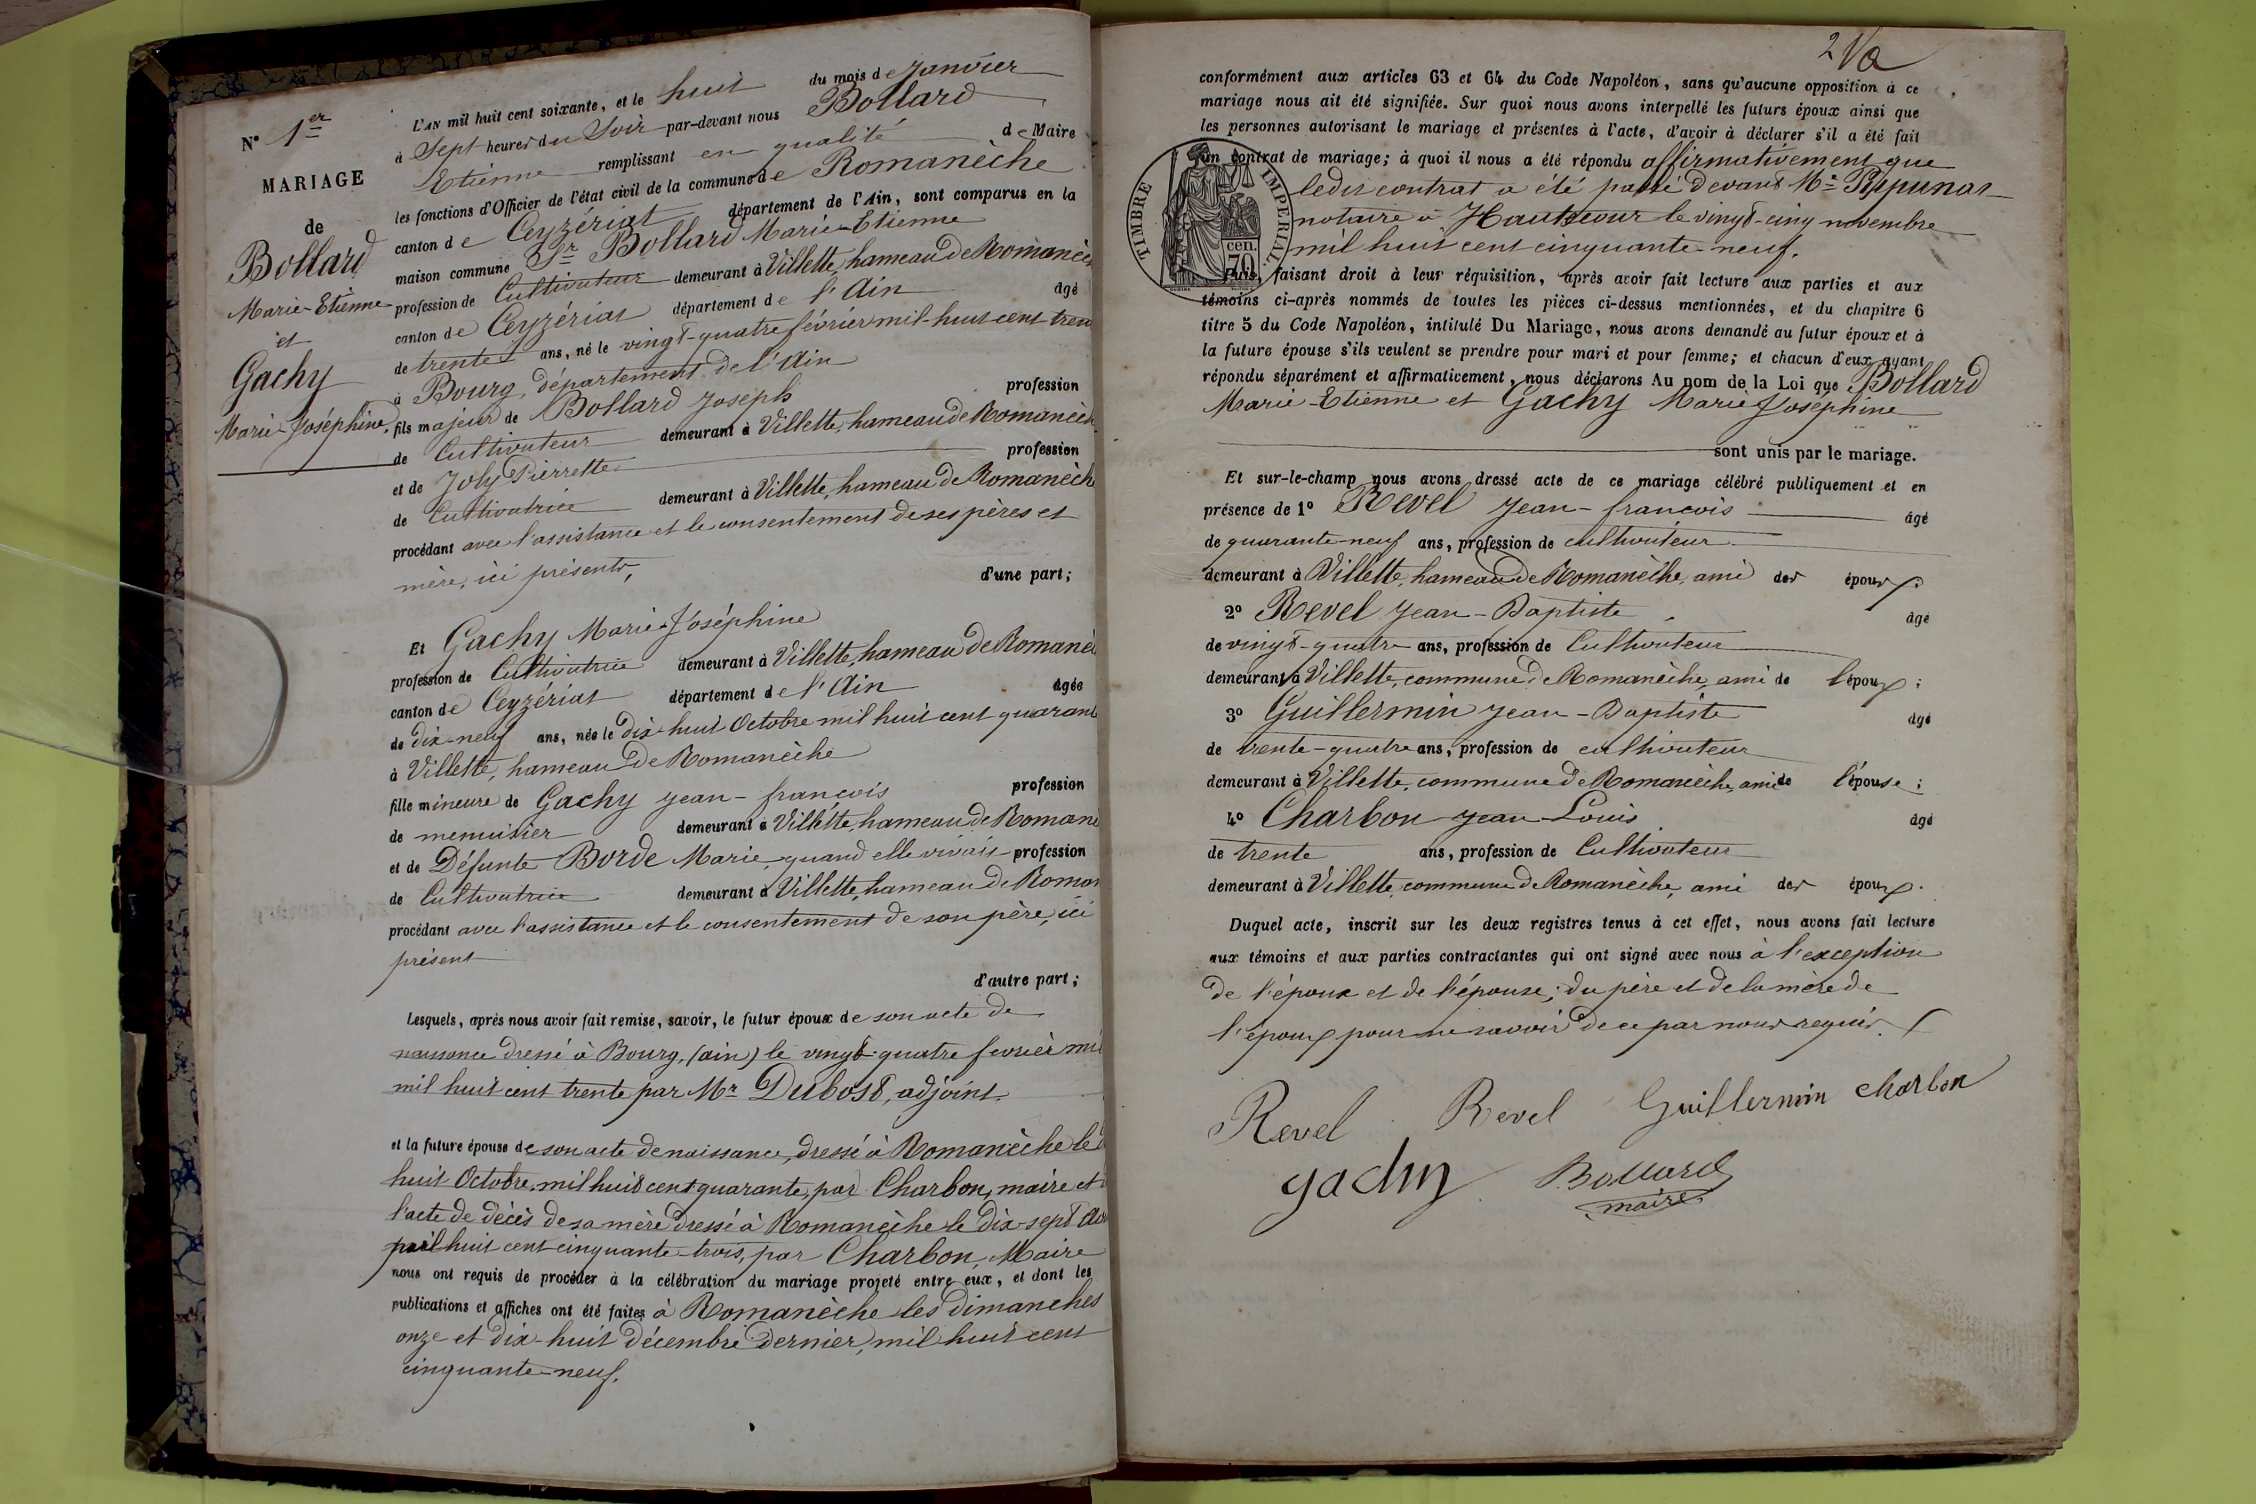 N° 1er
MARIAGE
de
Bollard
Marie-Etienne
et
Gachy
Marie-Joséphine.
L'AN mil huit cent soixante, et le huit du mois de Janvier
à Sept heures du Soir par-devant nous Bollard
Etienne remplissant en qualité de Maire
les fonctions d'Officier de l'état civil de la commune de Romanèche
canton de Ceyzériat département de l'Ain, sont comparus en la
maison commune Sr Bollard Marie-Etienne
profession de Cultivateur demeurant à Villette, hameau de Romanèche
canton de Ceyzériat département de l'Ain âgé
de trente ans, né le vingt-quatre février mil-huit cent tren
à Bourg, département de l'Ain
fils majeur de Bollard Joseph profession
de Cultivateur demeurant à Villette, hameau de Romanèch
et de Joly Pierrette profession
de Cultivatrice demeurant à Villette, hameau de Romanèch
procédant avec l'assistance et le consentement de ses pères et
mère, ici présents, d'une part;
Et Gachy Marie-Joséphine
profession de Cultivatrice demeurant à Villette, hameau de Romanè
canton de Ceyzériat département de l'Ain âgée
de dix-neuf ans, née le dix-huit Octobre mil huit cent quarant
à Villette, hameau de Romanèche
fille mineure de Gachy Jean-francois profession
de menuisier demeurant à Villette, hameau de Romanè
et de Défunte Borde Marie, quand elle vivait profession
de Cultivatrice demeurant à Villette, hameau de Roman
procédant avec l'assistance et le consentement de son père, ici
présent
d'autre part;
Lesquels, après nous avoir fait remise, savoir, le futur époux de son acte de
naissance dressé à Bourg, (ain) le vingt-quatre fevrier mil
mil huit cent trente par Mr Dubost, adjoint.
et la future épouse de son acte de naissance, dressé à Romanèche le d
huit Octobre, mil huit cent quarante, par Charbon, maire et d
l'acte de décès de sa mère dressé à Romanèche le dix-sept
mil huit cent cinquante-trois, par Charbon, Maire
nous ont requis de procéder à la célébration du mariage projeté entre eux, et dont les
publications et affiches ont été faites à Romanèche les dimanches
onze et dix-huit décembre dernier, mil huit cent
cinquante-neuf.
2
conformément aux articles 63 et 64 du Code Napoléon, sans qu'aucune opposition à ce
mariage nous ait été signifiée. Sur quoi nous avons interpellé les futurs époux ainsi que
les personnes autorisant le mariage et présentes à l'acte, d'avoir à déclarer s'il a été fait
un contrat de mariage; à quoi il nous a été répondu affirmativement que
ledit contrat a été passé devant Mr
notaire à Hautecour le vingt-cinq novembre
mil huit cent cinquante-neuf.
TIMBRE IMPÉRIAL.
70 cen.
Puis, faisant droit à leur réquisition, après avoir fait lecture aux parties et aux
témoins ci-après nommés de toutes les pièces ci-dessus mentionnées, et du chapitre 6
titre 5 du Code Napoléon, intitulé Du Mariage, nous avons demandé au futur époux et à
la future épouse s'ils veulent se prendre pour mari et pour femme; et chacun d'eux ayant
répondu séparément et affirmativement, nous déclarons Au nom de la Loi que Bollard
Marie-Etienne et Gachy Marie Joséphine
sont unis par le mariage.
Et sur-le-champ nous avons dressé acte de ce mariage célébré publiquement et en
présence de 1° Revel Jean-francois âgé
de quarante-neuf ans, profession de cultivateur
demeurant à Villette, hameau de Romanèche, ami des époux.
2° Revel Jean-Baptiste âgé
de vingt-quatre ans, profession de Cultivateur
demeurant à Villette, commune de Romanèche, ami de l'époux;
3° Guillermin Jean-Baptiste âgé
de trente-quatre ans, profession de cultivateur
demeurant à Villette, commune de Romanèche, ami de l'épouse;
4° Charbon Jean Louis âgé
de trente ans, profession de Cultivateur
demeurant à Villette, commune de Romanèche, ami des époux.
Duquel acte, inscrit sur les deux registres tenus à cet effet, nous avons fait lecture
aux témoins et aux parties contractantes qui ont signé avec nous à l'exception
de l'époux et de l'épouse; du père et de la mère de
l'époux pour ne savoir de ce par nous requis.
Revel Revel Guillermin charbon
gachy Bollard
maire